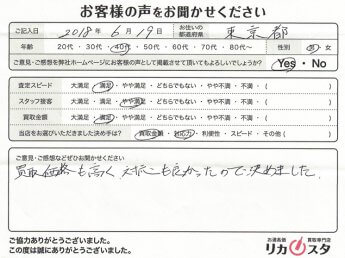 お客様の声をお聞かせください
ご記入日 2018年 6月 19日 お住いの都道府県 東京都
年齢 20代・30代・40代・50代・60代・70代・80代〜 性別 男・女
ご意見・ご感想を弊社ホームページにお客様の声として掲載させて頂いてもよろしいでしょうか? Yes・No
査定スピード 大満足・満足・やや満足・どちらでもない・やや不満・不満・( )
スタッフ接客 大満足・満足・やや満足・どちらでもない・やや不満・不満・( )
買取金額 大満足・満足・やや満足・どちらでもない・やや不満・不満・( )
当店をお選びいただきました決め手は? 買取金額・対応力・利便性・スピード・その他( )
ご意見・ご感想などぜひお聞かせください
買取価格も高く対応も良かったので決めました。
ご協力ありがとうございました。
この度は誠にありがとうございました。
お酒高価買取専門店
リカスタ